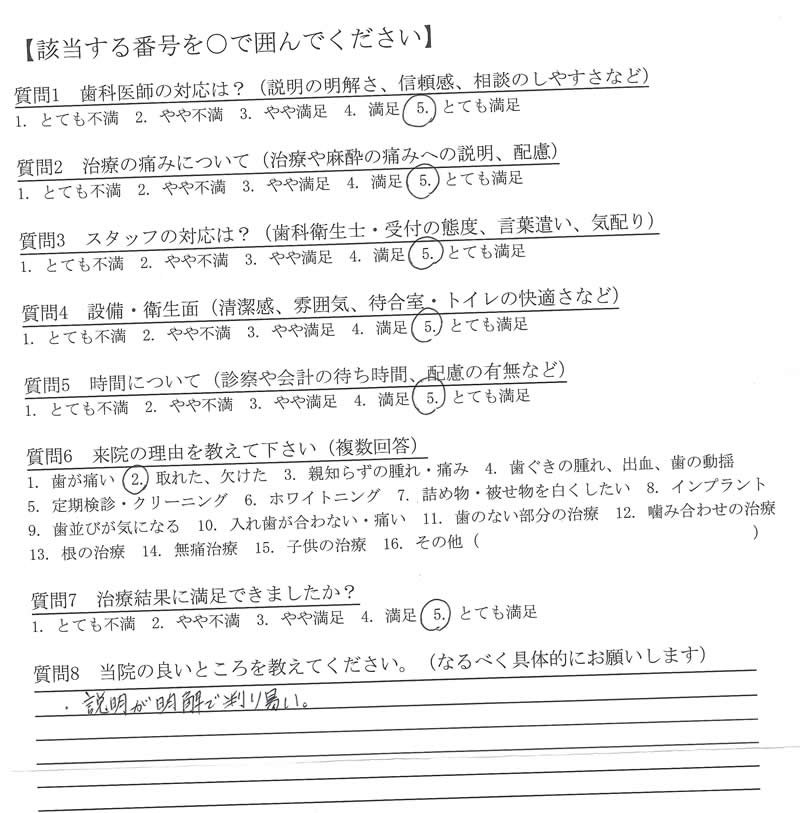 【該当する番号を○で囲んでください】
質問1　歯科医師の対応は？（説明の明解さ、信頼感、相談のしやすさなど）
1. とても不満　2. やや不満　3. やや満足　4. 満足　5. とても満足
質問2　治療の痛みについて（治療や麻酔の痛みへの説明、配慮）
1. とても不満　2. やや不満　3. やや満足　4. 満足　5. とても満足
質問3　スタッフの対応は？（歯科衛生士・受付の態度、言葉遣い、気配り）
1. とても不満　2. やや不満　3. やや満足　4. 満足　5. とても満足
質問4　設備・衛生面（清潔感、雰囲気、待合室・トイレの快適さなど）
1. とても不満　2. やや不満　3. やや満足　4. 満足　5. とても満足
質問5　時間について（診察や会計の待ち時間、配慮の有無など）
1. とても不満　2. やや不満　3. やや満足　4. 満足　5. とても満足
質問6　来院の理由を教えて下さい（複数回答）
1. 歯が痛い　2. 取れた、欠けた　3. 親知らずの腫れ・痛み　4. 歯ぐきの腫れ、出血、歯の動揺
5. 定期検診・クリーニング　6. ホワイトニング　7. 詰め物・被せ物を白くしたい　8. インプラント
9. 歯並びが気になる　10. 入れ歯が合わない・痛い　11. 歯のない部分の治療　12. 噛み合わせの治療
13. 根の治療　14. 無痛治療　15. 子供の治療　16. その他（　　　　　　　　　　）
質問7　治療結果に満足できましたか？
1. とても不満　2. やや不満　3. やや満足　4. 満足　5. とても満足
質問8　当院の良いところを教えてください。（なるべく具体的にお願いします）
・説明が明解で判り易い。